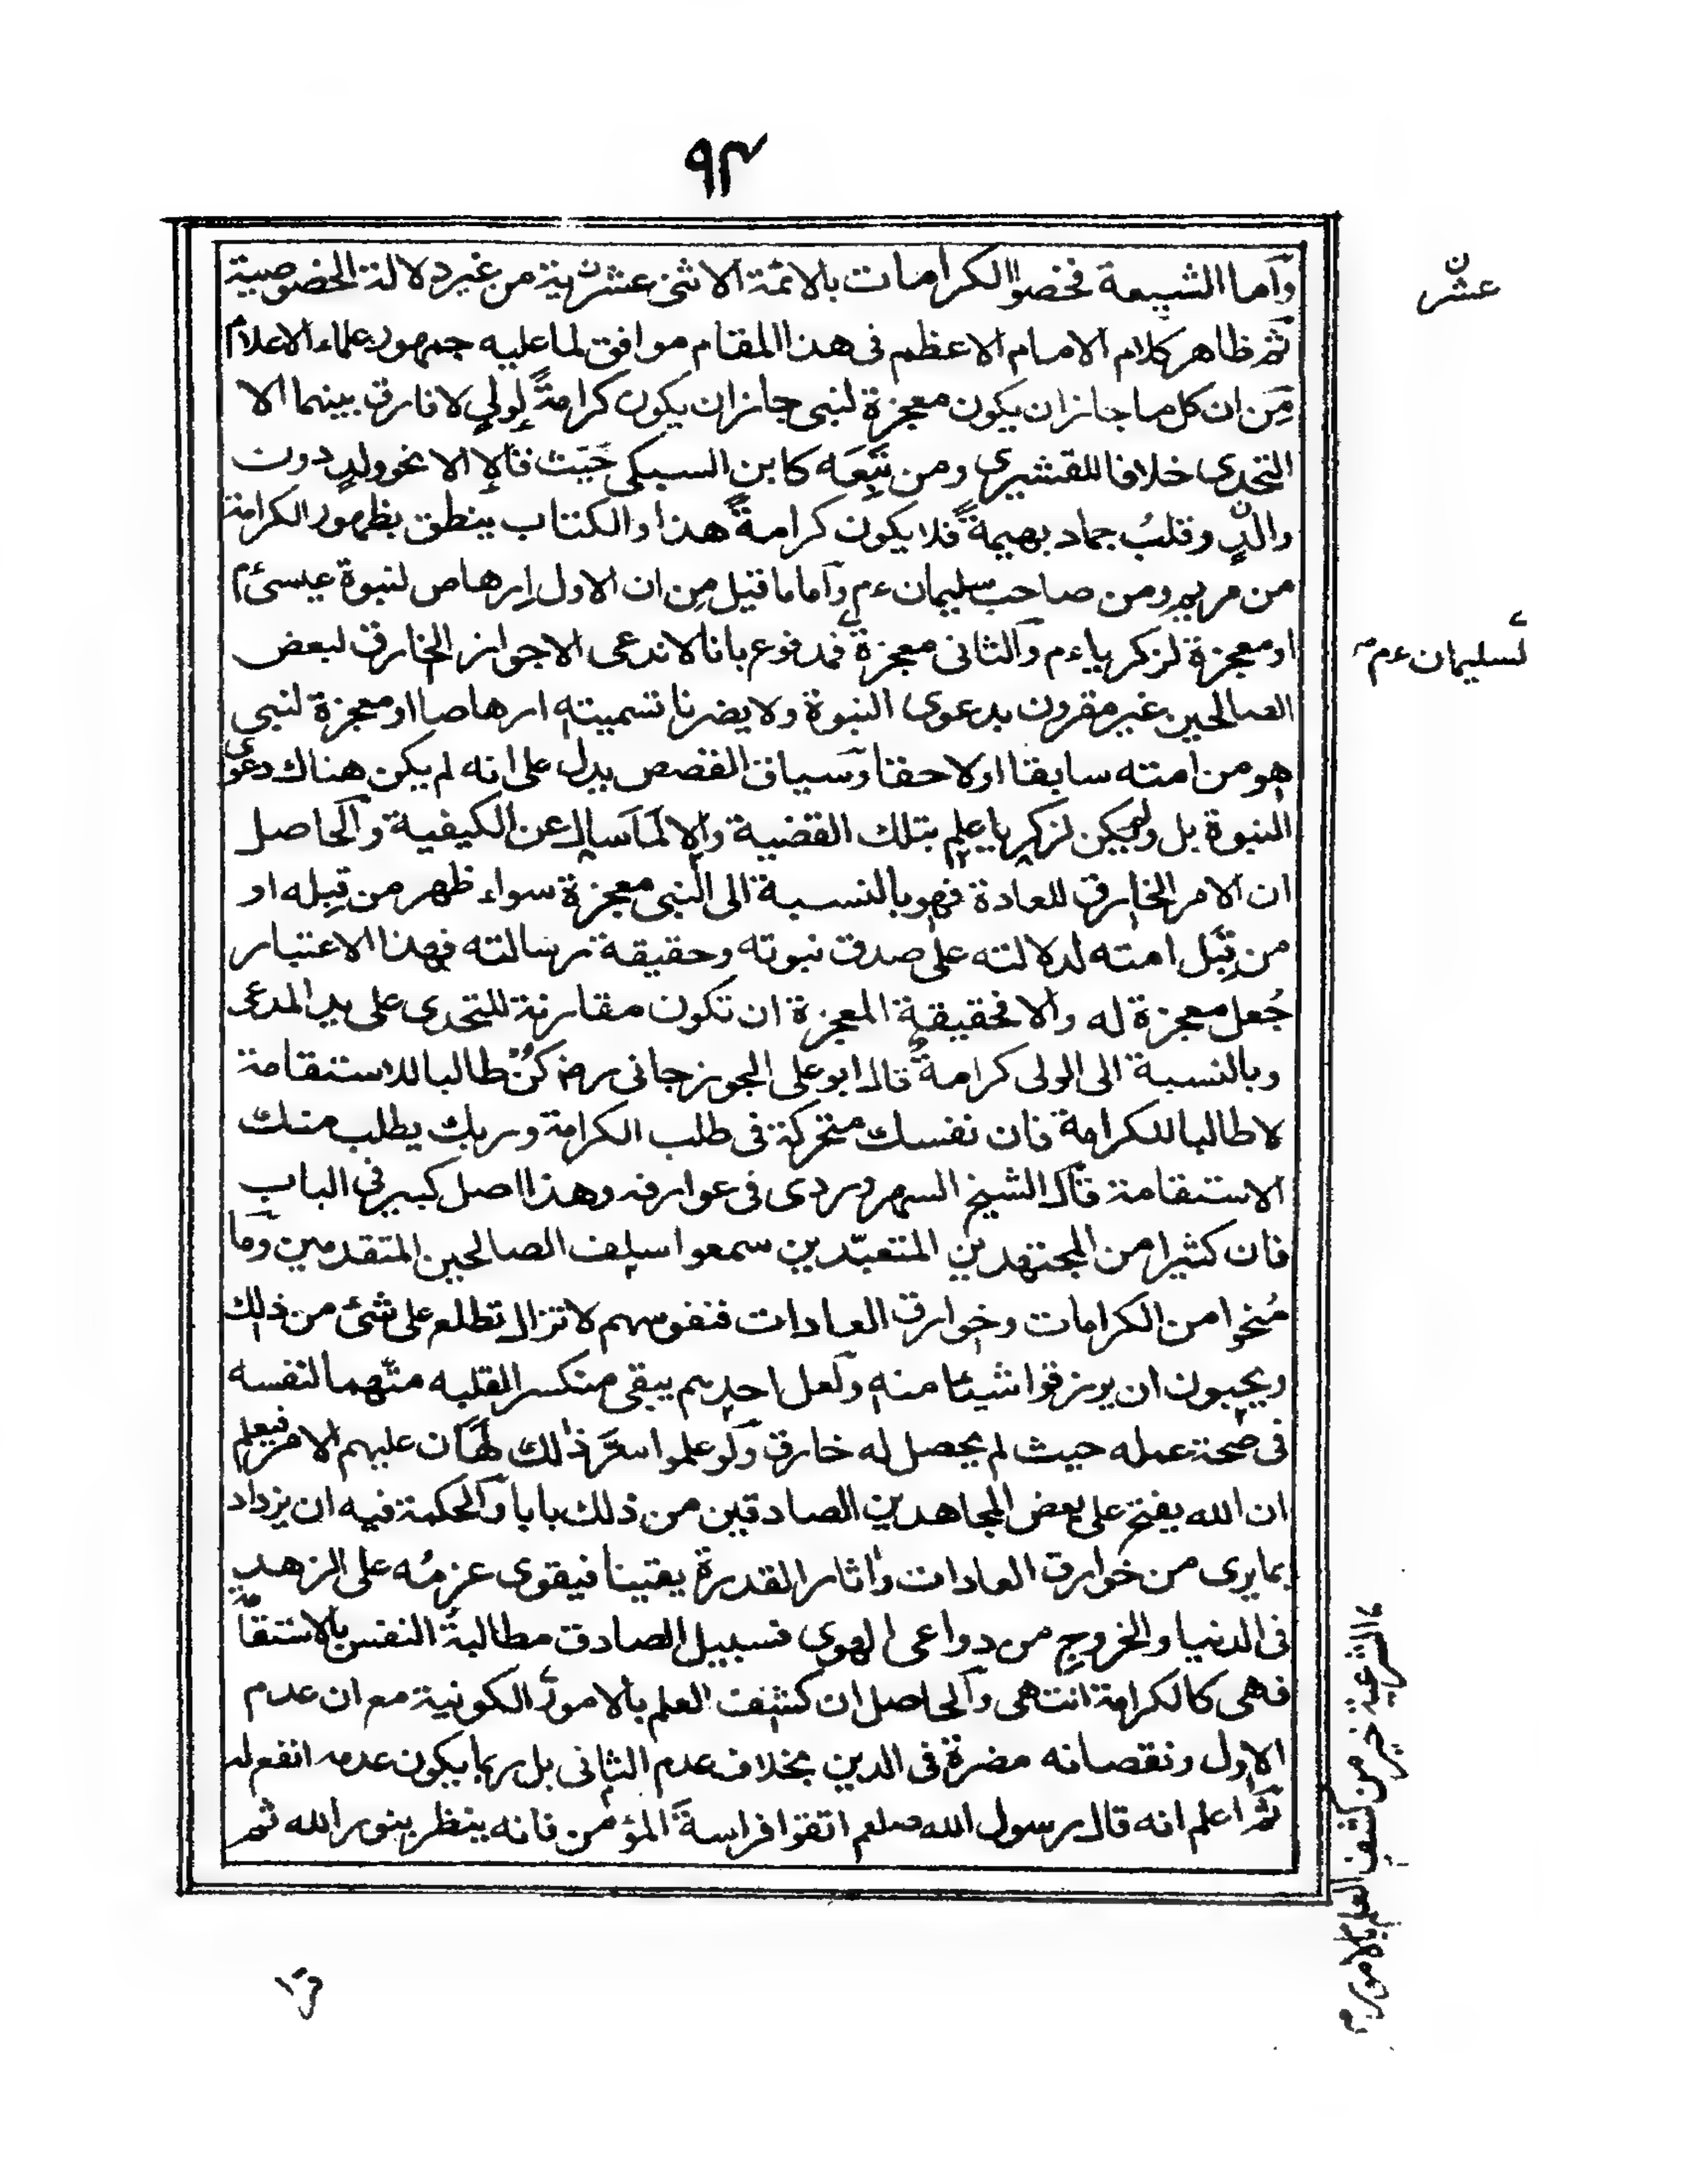 ٩٣
وأما الشيعة فخصوا الكرامات بالائمة الاثنى عشرية من غير دلالة الخصوصية
ثم ظاهر كلام الامام الاعظم فى هذا المقام موافق لما عليه جمهور علماء الاعلام
مِن ان كل ما جاز ان يكون معجزة لنبى جاز ان يكون كرامةً لولىٍ لا فارق بينهما الا
التحدى خلافا للقشيرى ومن تَبِعَه كابن السبكى حَيث قالا الا نحو ولدٍ دون
والدٍ وقلبُ جماد بهيمةً فلا يكون كرامةً هذا والكتاب ينطق بظهور الكرامة
من مريم ومن صاحب سليمان ءم وأما ما قيل مِن ان الاول اِرهاص لنبوة عيسىٰ ءم
او معجزة لزكرياءم والثانى معجزة فمدفوع بانا لا ندعى الا جواز الخارق لبعض
الصالحين غير مقرون بدعوى النبوة ولا يضرنا تسميته ارهاصا او معجزة لنبى
هو من امته سابقا او لاحقا وسياق القصص يدل على انه لم يكن هناك دعوى
النبوة بل ولم يكن لزكريا علم بتلك القضية والا لَمَا سال عن الكيفية والحاصل
ان الامر الخارق للعادة فهو بالنسبة الى النبى معجزة سواء ظهر من قِبله او
من قِبَل امته لدلالته على صدق نبوته وحقيقة رسالته فبهذا الاعتبار
جُعل معجزة له والا فحقيقة المعجزة ان تكون مقارنة للتحدى على يد المدعى
وبالنسبة الى الولى كرامةٌ قال ابو على الجوزجانى رضـ كُنْ طالبا للاستقامة
لا طالبا للكرامة فان نفسك متحركة فى طلب الكرامة وربك يطلب منك
الاستقامة قال الشيخ السهروردى فى عوارفه وهذا اصل كبير فى الباب
فان كثيرا من المجتهدين المتعبّدين سمعوا سلف الصالحين المتقدمين وما
مُنحوا من الكرامات وخوارق العادات فنفوسهم لا تزال تطلع على شئ من ذلك
ويحبون ان يرزقوا شيئا منه ولعل احدهم يبقى منكسر القلبه متّهما لنفسه
فى صحة عمله حيث لم يحصل له خارق ولو علموا سرَّ ذلك لَهَان عليهم الامر فيعلم
ان الله يفتح على بعض المجاهدين الصادقين من ذلك بابا والحكمة فيه ان يزداد
بما يرى من خوارق العادات واثار القدرة يقينا فيقوى عزمُه على الزهد
فى الدنيا والخروجِ من دواعى الهوى فسبيل الصادق مطالبةُ النفس بالاستقامة
فهى كالكرامة انتهى والحاصل ان كشف العلم بالامور الكونية مع ان عدم
الاول ونقصانه مضرة فى الدين بخلاف عدم الثانى بل ربما يكون عدمه انفع له
ثم اعلم انه قال رسول الله صلعم اتقوا فراسةَ المؤمن فانه ينظر بنور الله ثم
عشر
لسليمان ءم
الشرعية خير من كشف العلم بالامور